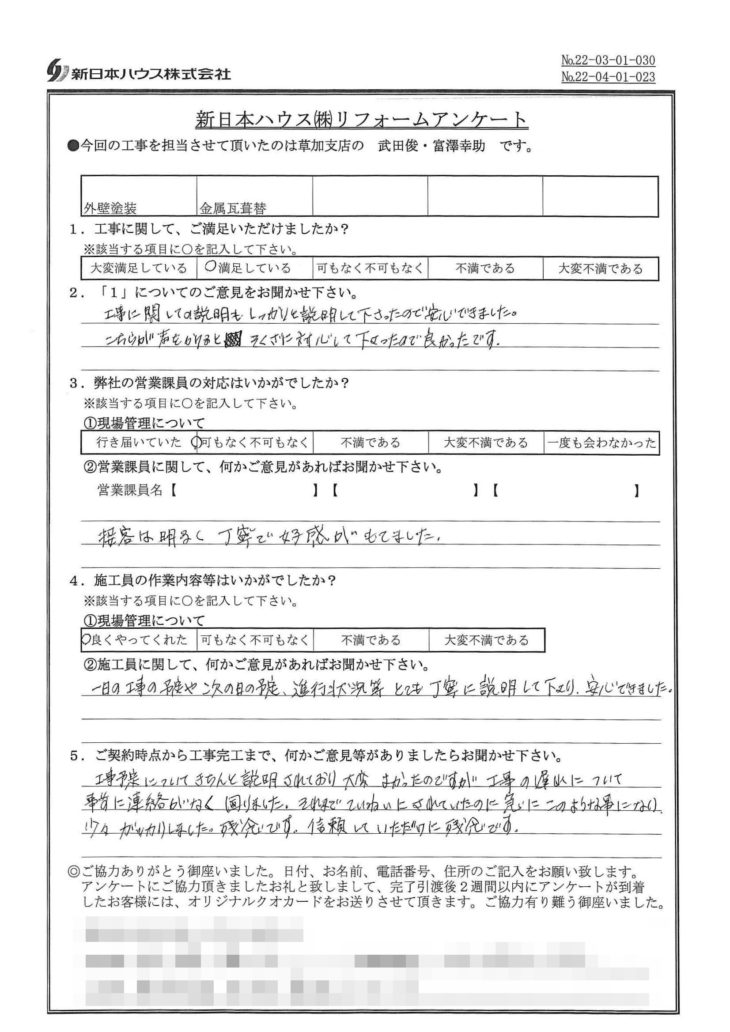 新日本ハウス株式会社
№22-03-01-030
№22-04-01-023
新日本ハウス㈱リフォームアンケート
●今回の工事を担当させて頂いたのは草加支店の 武田俊・富澤幸助 です。
外壁塗装 金属瓦葺替
1．工事に関して、ご満足いただけましたか？
※該当する項目に〇を記入して下さい。
大変満足している 〇満足している 可もなく不可もなく 不満である 大変不満である
2．「1」についてのご意見をお聞かせ下さい。
工事に関しての説明もしっかりと説明して下さったので安心できました。
こちらが声をかけると すぐさに対応して下さったので良かったです。
3．弊社の営業課員の対応はいかがでしたか？
※該当する項目に〇を記入して下さい。
①現場管理について
行き届いていた 〇可もなく不可もなく 不満である 大変不満である 一度も会わなかった
②営業課員に関して、何かご意見があればお聞かせ下さい。
営業課員名【 】【 】【 】
接客は明るく丁寧で好感がもてました。
4．施工員の作業内容等はいかがでしたか？
※該当する項目に〇を記入して下さい。
①現場管理について
〇良くやってくれた 可もなく不可もなく 不満である 大変不満である
②施工員に関して、何かご意見があればお聞かせ下さい。
一日の工事の予定や次の日の予定、進行状況等 とても丁寧に説明して下さり、安心できました。
5．ご契約時点から工事完工まで、何かご意見等がありましたらお聞かせ下さい。
工事予定についてきちんと説明されており大変よかったのですが工事の遅れについて
事前に連絡がなく困りました。それまでていねいにされていたのに急にこのような事になり、
少々がっかりしました。残念です。信頼していただけに残念です。
◎ご協力ありがとう御座いました。日付、お名前、電話番号、住所のご記入をお願い致します。
アンケートにご協力頂きましたお礼と致しまして、完了引渡後2週間以内にアンケートが到着
したお客様には、オリジナルクオカードをお送りさせて頂きます。ご協力有り難う御座いました。